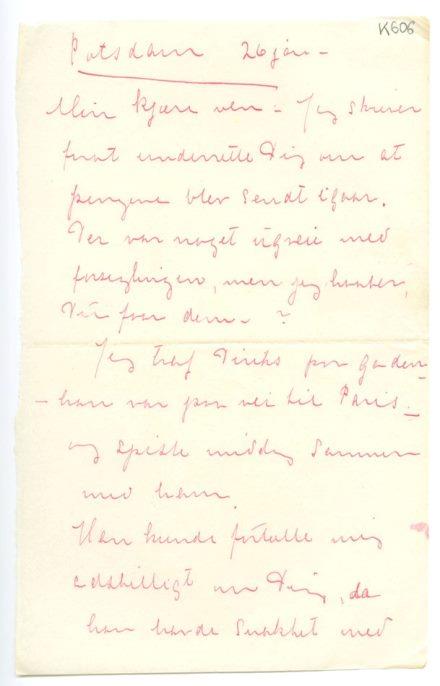 K606
Potsdam 26 jan –
Min kjære ven – Jeg skriver
for at underrette Dig om at
pengene blev sendt igaar.
Der var noget ugreie med
forseglingen, men jeg haaber,
Du faar dem – ?
Jeg traf Dirks paa gaden –
– han var paa vei til Paris –
og spiste middag sammen
med ham.
Han kunde fortælle mig
adskilligt om Dig, da
han havde snakket med